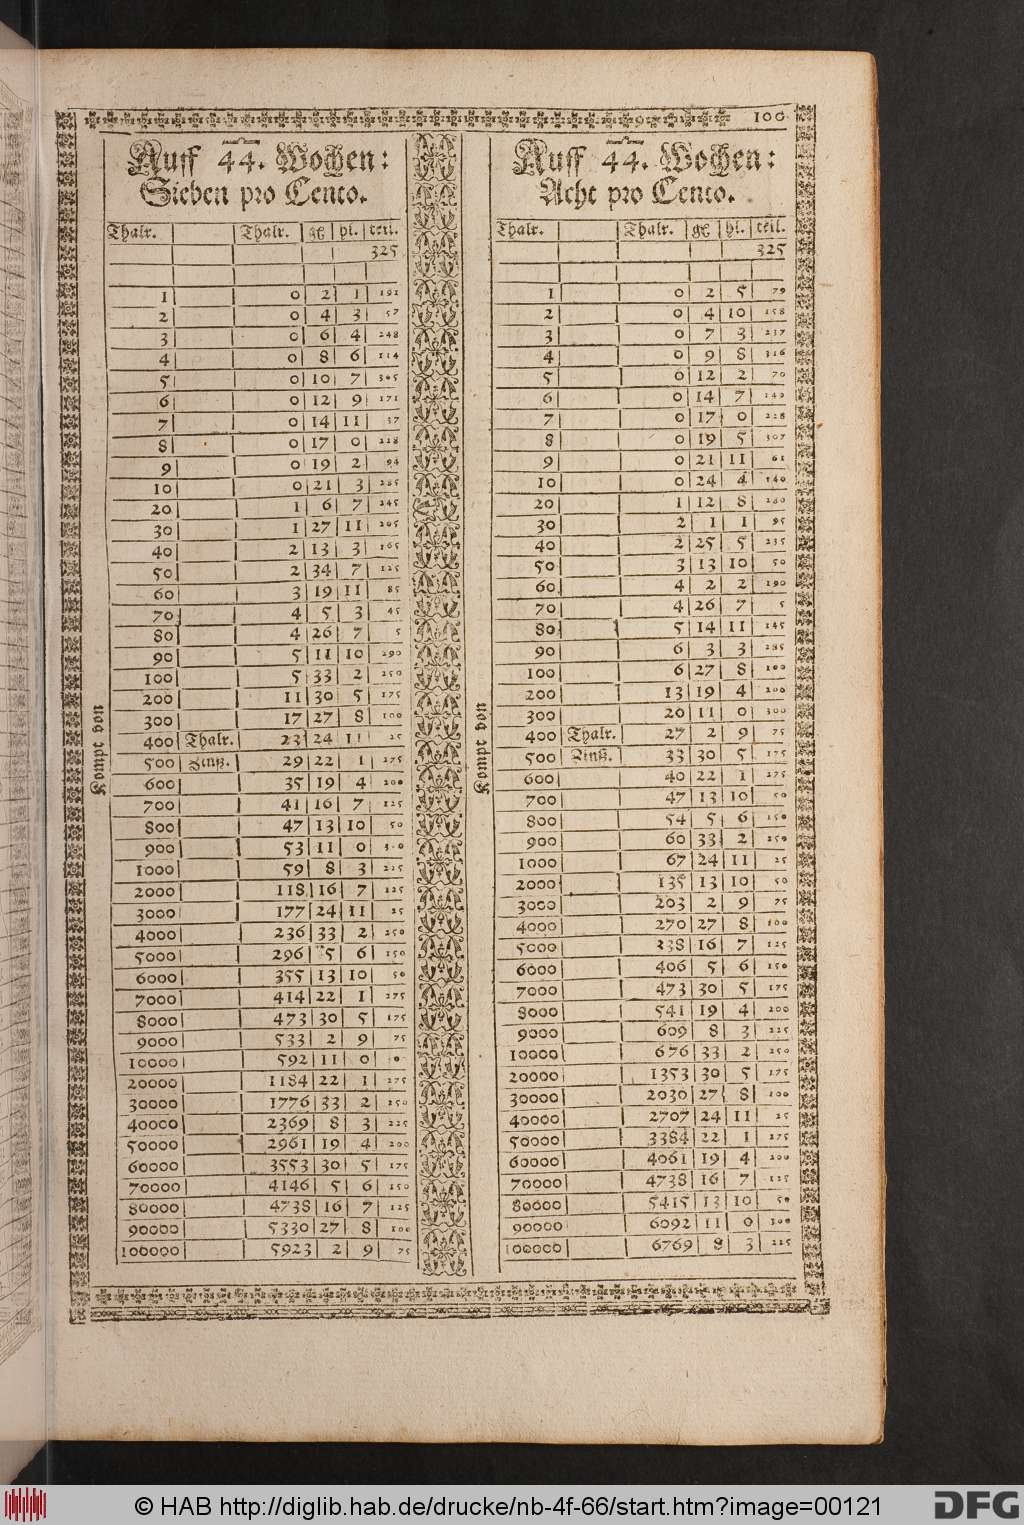 100
Auff 44. Wochen:
Sieben pro Cento.
Thalr. Thalr. gß hl. teil.
325
1 0 2 1 191
2 0 4 3 57
3 0 6 4 248
4 0 8 6 114
5 0 10 7 305
6 0 12 9 171
7 0 14 11 37
8 0 17 0 228
9 0 19 2 94
10 0 21 3 285
20 1 6 7 245
30 1 27 11 205
40 2 13 3 165
50 2 34 7 125
60 3 19 11 85
70 4 5 3 45
80 4 26 7 5
90 5 11 10 290
100 5 33 2 250
200 11 30 5 175
300 17 27 8 100
400 Thalr. 23 24 11 25
500 Zinß. 29 22 1 275
600 35 19 4 200
700 41 16 7 125
800 47 13 10 50
900 53 11 0 300
1000 59 8 3 225
2000 118 16 7 125
3000 177 24 11 25
4000 236 33 2 250
5000 296 5 6 150
6000 355 13 10 50
7000 414 22 1 275
8000 473 30 5 175
9000 533 2 9 75
10000 592 11 0
20000 1184 22 1 275
30000 1776 33 2 250
40000 2369 8 3 225
50000 2961 19 4 200
60000 3553 30 5 175
70000 4146 5 6 150
80000 4738 16 7 125
90000 5330 27 8 100
100000 5923 2 9 75
Kompt von
Auff 44. Wochen:
Acht pro Cento.
Thalr. Thalr. gß hl. teil.
325
1 0 2 5 79
2 0 4 10 158
3 0 7 3 237
4 0 9 8 316
5 0 12 2 70
6 0 14 7 149
7 0 17 0 228
8 0 19 5 307
9 0 21 11 61
10 0 24 4 140
20 1 12 8 280
30 2 1 1 95
40 2 25 5 235
50 3 13 10 50
60 4 2 2 190
70 4 26 7 5
80 5 14 11 145
90 6 3 3 285
100 6 27 8 100
200 13 19 4 200
300 20 11 0 300
400 Thalr. 27 2 9 75
500 Zinß. 33 30 5 175
600 40 22 1 275
700 47 13 10 50
800 54 5 6 150
900 60 33 2 250
1000 67 24 11 25
2000 135 13 10 50
3000 203 2 9 75
4000 270 27 8 100
5000 338 16 7 125
6000 406 5 6 150
7000 473 30 5 175
8000 541 19 4 200
9000 609 8 3 225
10000 676 33 2 250
20000 1353 30 5 175
30000 2030 27 8 100
40000 2707 24 11 25
50000 3384 22 1 275
60000 4061 19 4 200
70000 4738 16 7 125
80000 5415 13 10 50
90000 6092 11 0 300
100000 6769 8 3 225
Kompt von
© HAB http://diglib.hab.de/drucke/nb-4f-66/start.htm?image=00121
DFG